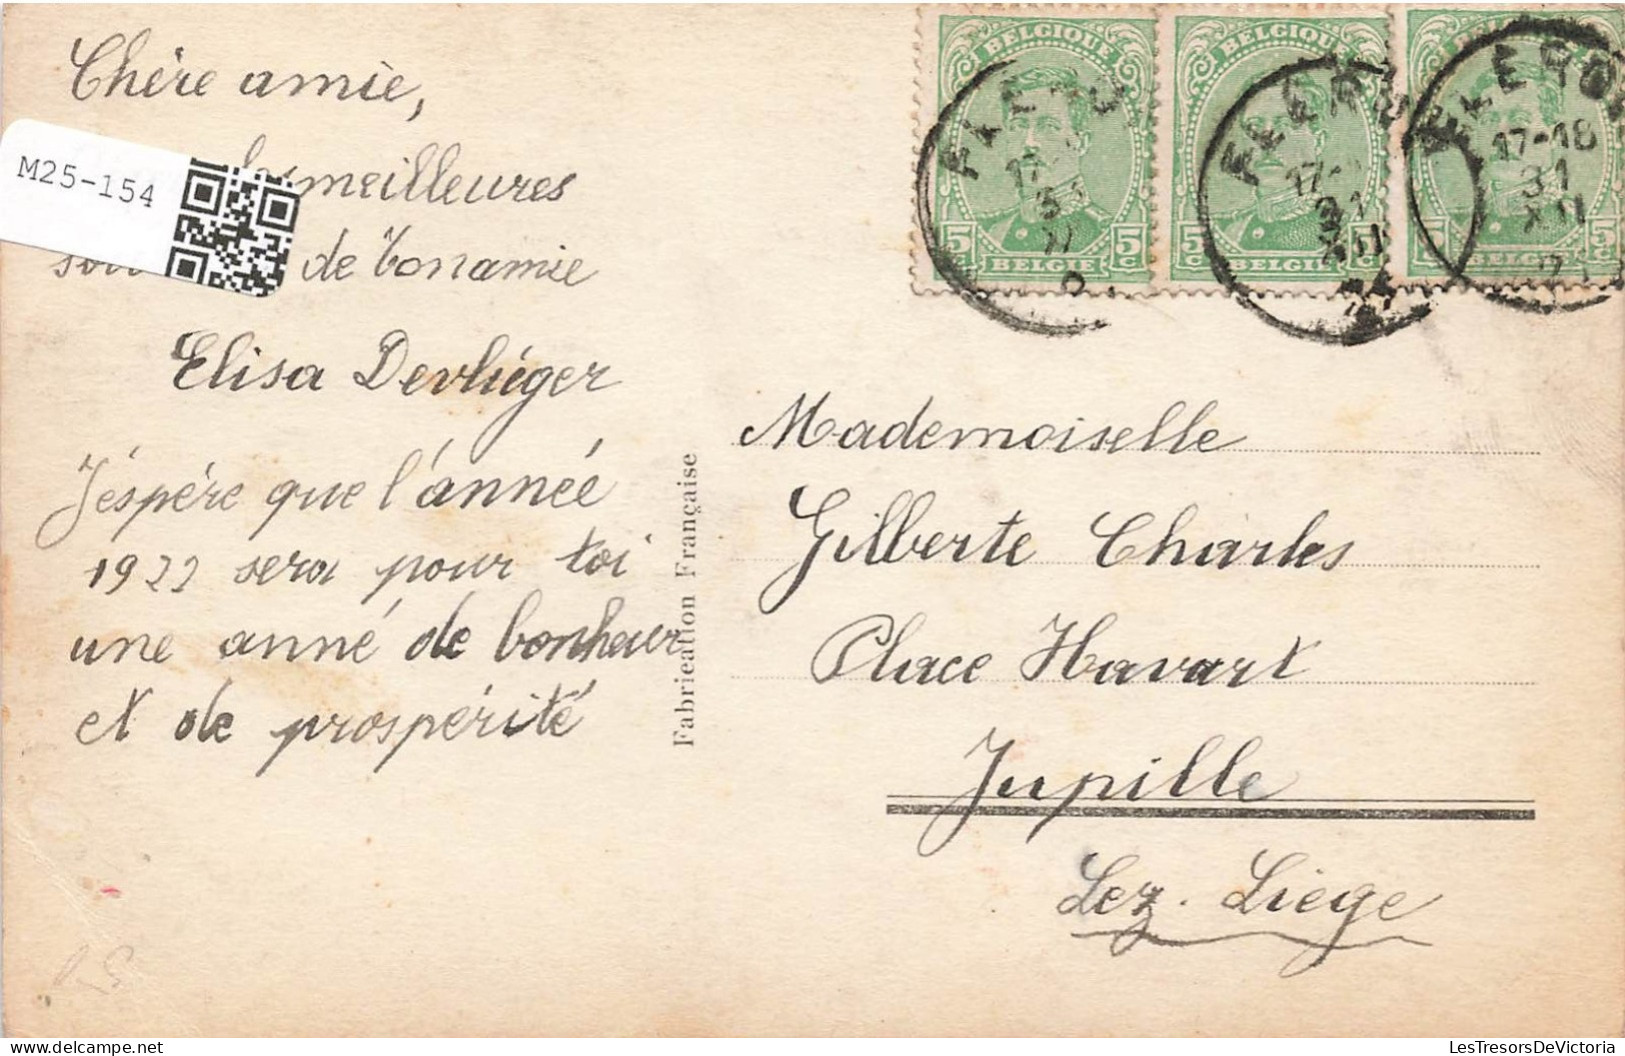 Chère amie,
M25-154
les meilleures
de ton amie
Elisa Devliéger
J'éspére que l'année
1922 sera pour toi
une anné de bonheur
et de prospérité
Fabrication Française
BELGIQUE
5c 5c
BELGIE
BELGIQUE
5c 5c
BELGIE
BELGIQUE
5c
BELGIE
FLERO
17-
FLERO
17-
31
XII
FLERO
17-18
31
XII
Mademoiselle
Gilberte Charles
Place Havart
Jupille
Lez. Liége
LesTresorsDeVictoria